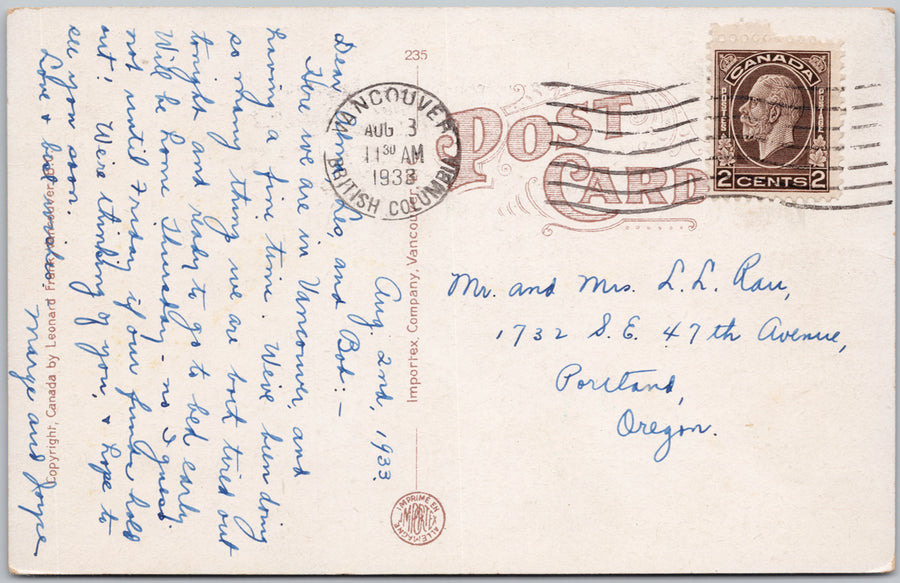 235
POST CARD
VANCOUVER
AUG 3
11 30 AM
1933
BRITISH COLUMBIA
CANADA
POSTES
POSTAGE
2 CENTS 2
Aug. 2nd, 1933.
Dear and Bob:-
Here we are in Vancouver, and
having a fine time. We've been doing
so many things we are most tired out
tonight and ready to go to bed early.
Will be home Thursday - no I guess
not until Friday if our funds hold
out! We're thinking of you, & hope to
see you soon.
Love & best wishes
Marge and Joyce
Mr. and Mrs. L. L. Rau,
1732 S. E. 47th Avenue,
Portland,
Oregon.
Importex, Company, Vancouver
Copyright, Canada by Leonard Frank, Vancouver, B.C.
IMPRIMÉ EN ALLEMAGNE